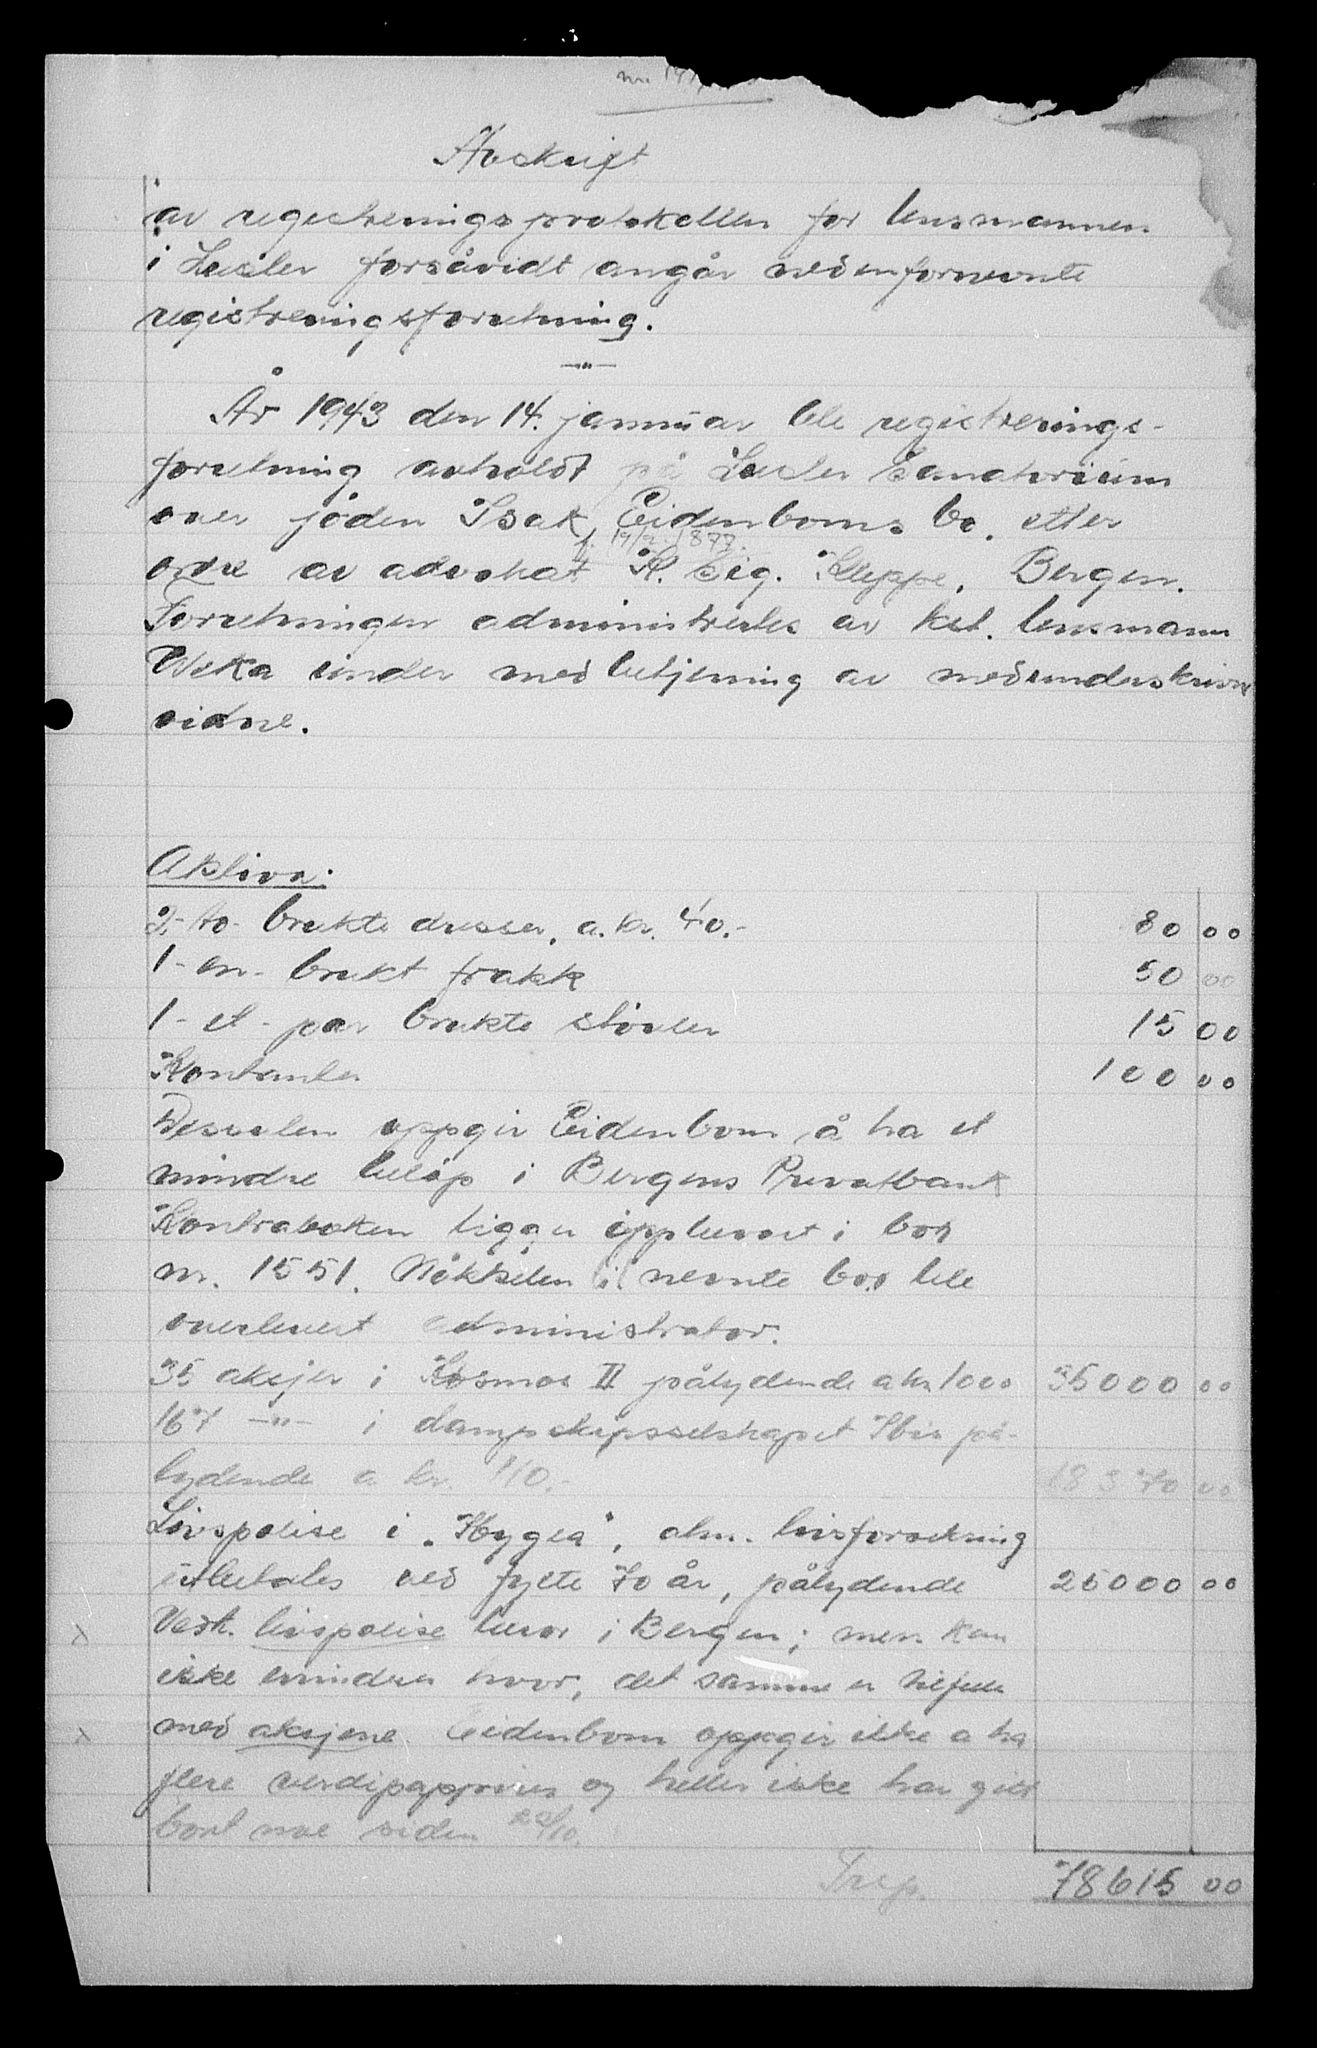 Avskrift
av registreringsprotokollen for lensmannen
i Luster forsåvidt angår nedenfornevnte
registreringsforretning.
—"—
År 1943 den 14. januar ble registrerings-
forretning avholdt på Luster Sanatorium
over jøden Isak Eidenboms bo, etter
f. 19/2. 1877.
ordre av advokat K. Sig. Kleppe, Bergen.
Forretningen administrertes av kst. lensmann
under medbetjening av medunderskrivne
vidne.
Aktiva:
2-to- brukte dresser, a. kr. 40.- 80 00
1-en- brukt frakk 50 00
1-et- par brukte støvler 15 00
Kontanter 100 00
Dessuten oppgir Eidenbom å ha et
mindre beløp i Bergens Privatbank
Kontraboken ligger oppbevart i box
nr. 1551. Nøkkelen til nevnte box ble
overlevert administrator.
35 aksjer i Kosmos II pålydende a kr. 1000 35000 00
167 —"— i dampskipsselskapet Ibis på-
lydende a kr. 110.- 18370 00
Livspolise i "Hygea", alm. livsforsikring
utbetales ved fylte 70 år, pålydende 25000 00
Vedk. livspolise beror i Bergen; men kan
ikke erindre hvor, det samme er tilfelle
med aksjene. Eidenbom oppgir ikke å ha
flere verdipapirer og heller ikke har gitt
bort noe siden 22/10.
Trsp. 78615 00